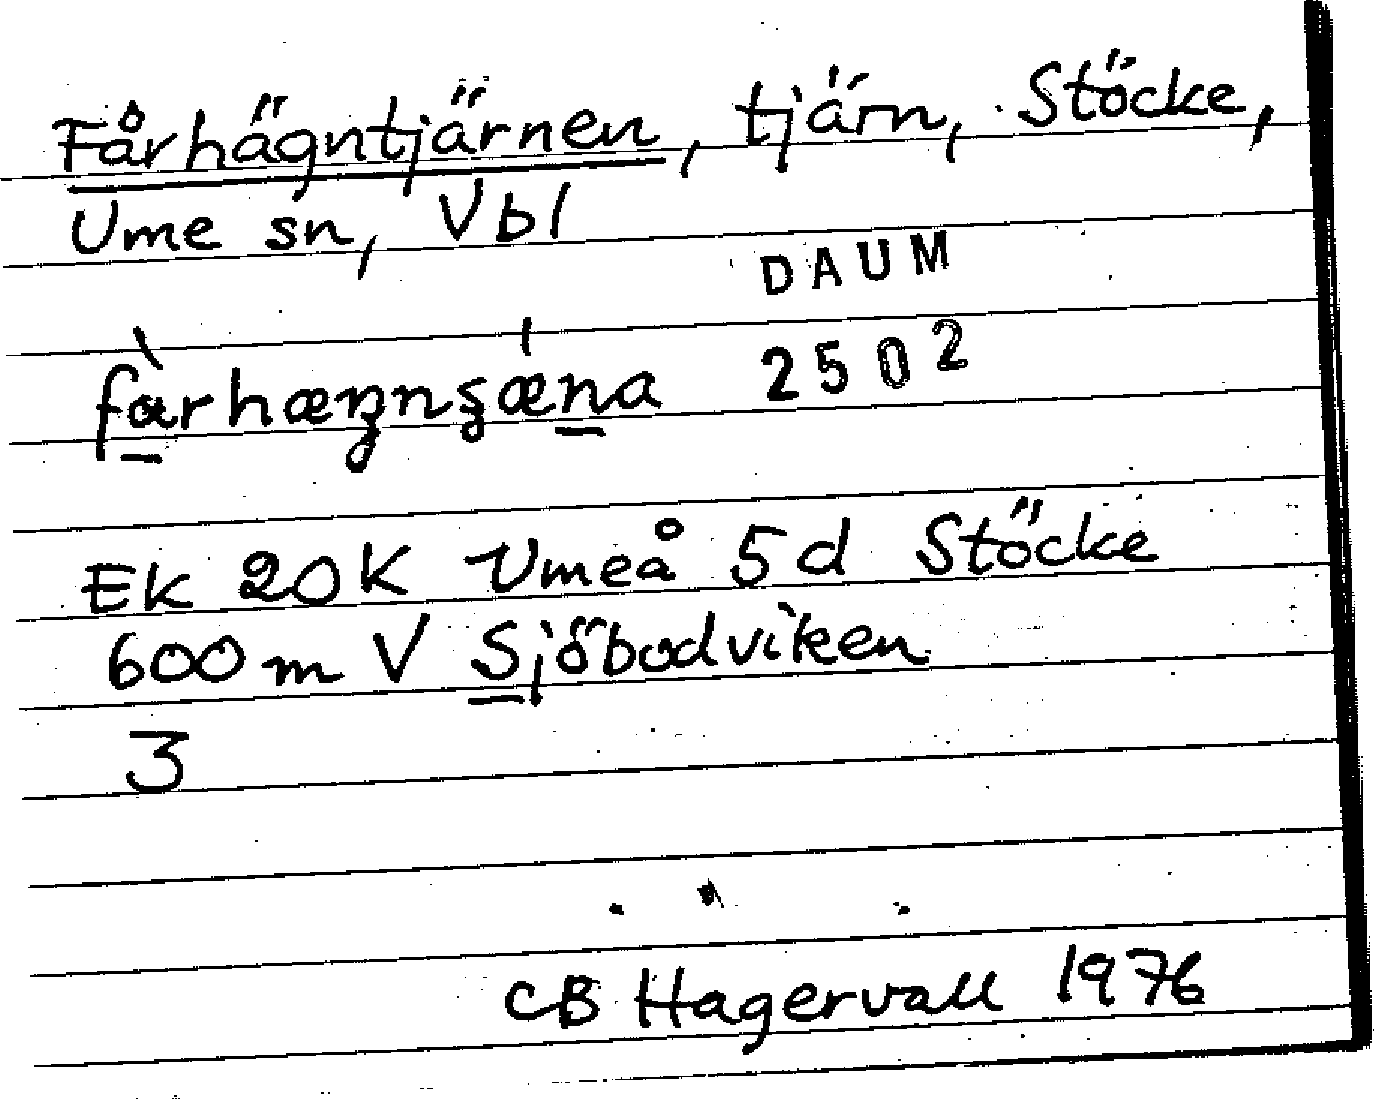 Fårhägntjärnen, tjärn, Stöcke,
Ume sn, Vbl
DAUM
2502
Ek 20K Umeå 5d Stöcke
600 m V Sjöbodviken
3
CB Hagervall 1976